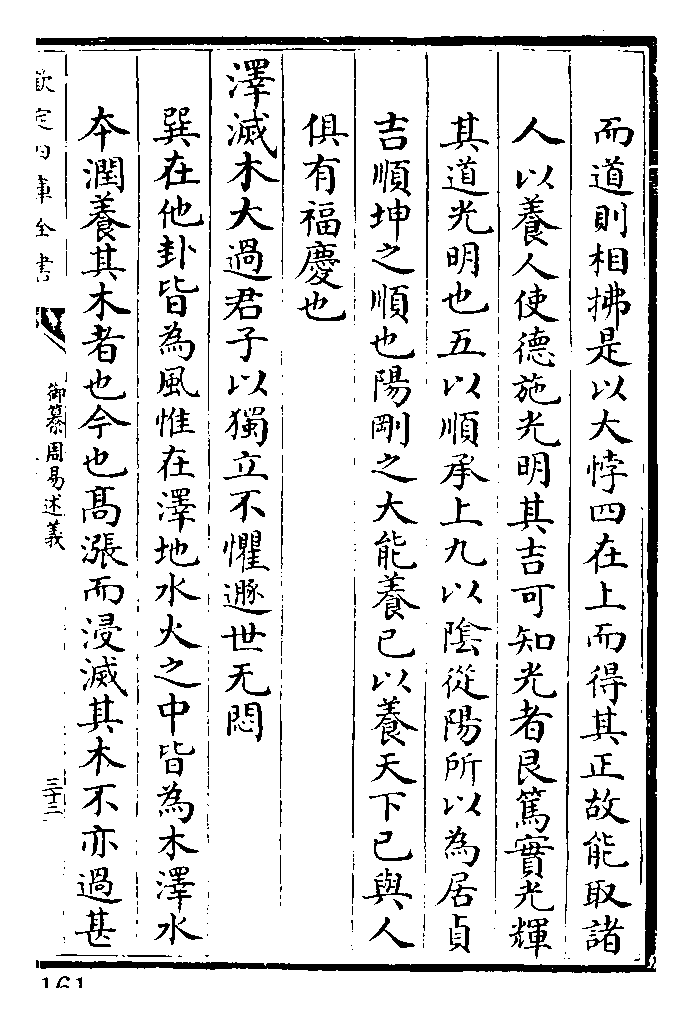 而道則相拂是以大悖四在上而得其正故能取諸
人以養人使德施光明其吉可知光者艮篤實光輝
其道光明也五以順承上九以隂從陽所以為居貞
吉順坤之順也陽剛之大能養已以養天下已與人
俱有福慶也
澤滅木大過君子以獨立不懼遯世无悶
巽在他卦皆為風惟在澤地水火之中皆為木澤水
本潤養其木者也今也髙漲而浸滅其木不亦過甚
欽定四庫全書
御纂周易述義
三十三
161